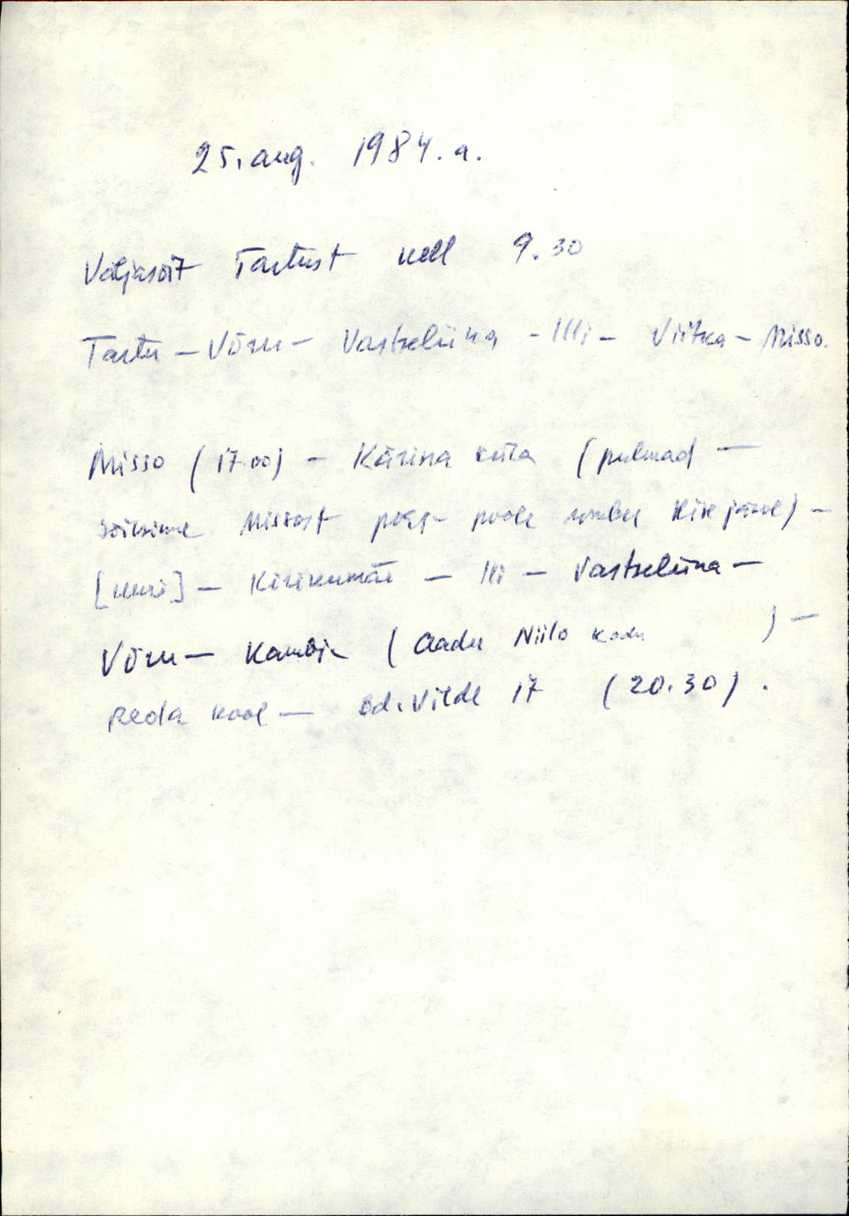 25. aug. 1984. a.
Väljasõit Tartust kell 9.30
Tartu – Võru – Vastseliina – Illi – Viitka – Misso.
Misso (17.00) – Kärina küla (pulmad –
sõitsime Missost poole ümber järve) –
– Kirikumäe – Illi – Vastseliina –
Võru – Kambja (Aadu Niilo kodu ) –
Reola kool – Ed. Vilde 17 (20.30).